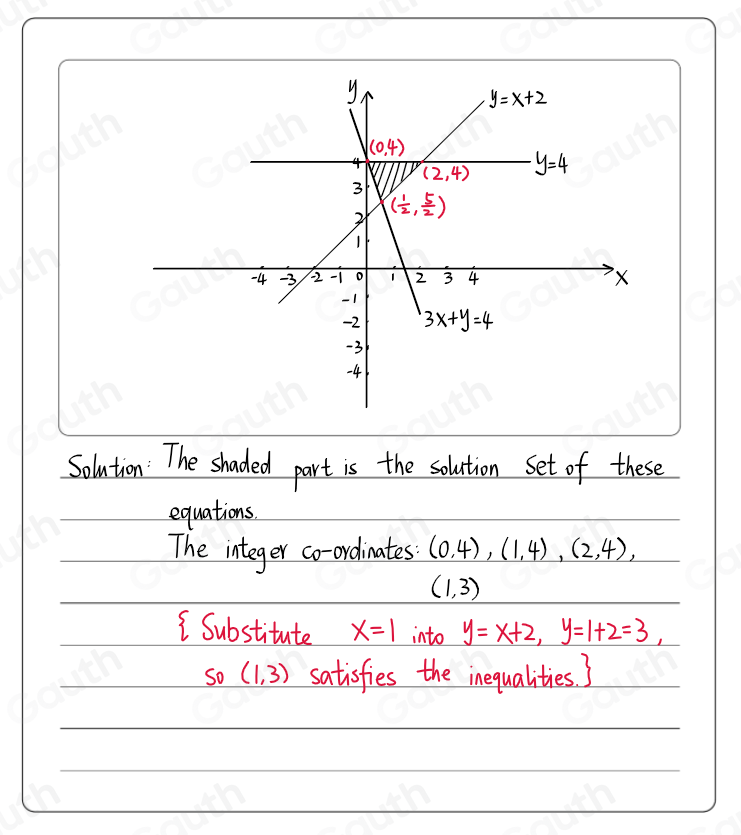 y
y=x+2
(0,4)
4
y=4
(2,4)
3
(1/2, 5/2)
2
1
-4 -3 -2 -1 0 1 2 3 4
x
-1
-2
3x+y=4
-3
-4
Solution: The shaded part is the solution set of these
equations.
The integer co-ordinates: (0,4), (1,4), (2,4),
(1,3)
{ Substitute x=1 into y=x+2, y=1+2=3,
so (1,3) satisfies the inequalities.}
Gauth